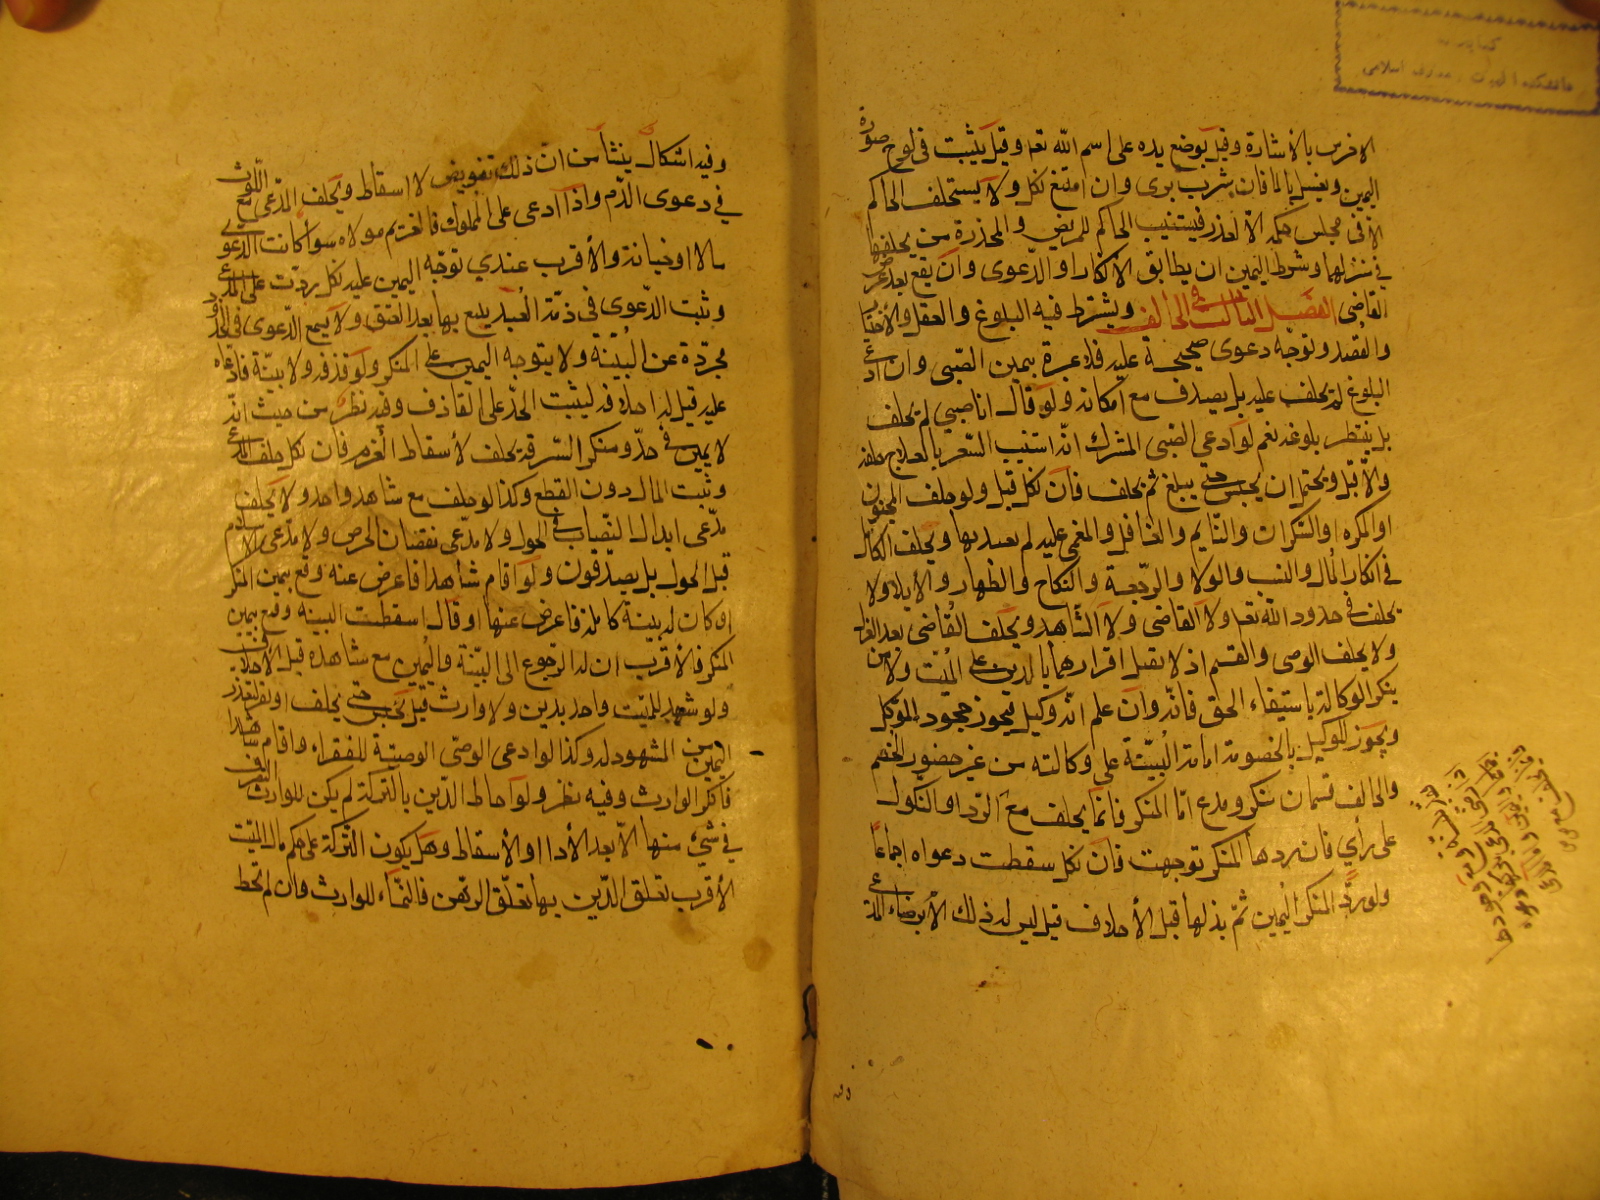 الاخرس بالاشارة وقيل بوضع يده على اسم الله تعم وقيل يثبت في لوح صورة
اليمين ويغسل بالماء فان شرب برئ وان امتنع نكل ولا يستحلف الحاكم
الا في مجلس حكمه الا لعذر فيستنيب الحاكم للمريض والمخدرة من يحلفها
في منزلها وشرط اليمين ان يطابق الانكار او الدعوى وان يقع بعد عرض
القاضي الفصل الثالث في الحالف ويشترط فيه البلوغ والعقل والاختيار
والقصد وتوجّه دعوى صحيحة عليه فلا عبرة بيمين الصبي وان ادعى
البلوغ لم يحلف عليه بل يصدق مع امكانه ولو قال انا صبي لم يحلف
بل ينتظر بلوغه نعم لو ادعى الصبي المشرك انه استنبت الشعر بالعلاج حلف
والا قتل ويحتمل ان يحبس حتى يبلغ ثم يحلف فان نكل قتل ولو حلف المجنون
او المكره والسكران والنايم والغافل والمغمى عليه لم يعتد بها ويحلف الكافر
في انكار المال والنسب والولا والرجعة والنكاح والظهار والايلاء ولا
يحلف في حدود الله تعم ولا القاضي ولا الشاهد ويحلف القاضي بعد العزل
ولا يحلف الوصي والقيم اذ لا يقبل اقرارهما بالدين على الميت ولا من
ينكر الوكالة باستيفاء الحق فانّه وان علم انه وكيل يجوز جحود الموكل
ويجوز للوكيل بالخصومة اقامة البيّنة على وكالته من غير حضور الخصم
والحالف قسمان منكر ومدع امّا المنكر فانما يحلف مع الرد او النكول
على رأي فان ردها المنكر توجهت فان نكل سقطت دعواه اجماعاً
ولو ردّ المنكر اليمين ثمّ بذلها قبل الاحلاف قيل ليس له ذلك الا برضاء المدعي
وفيه اشكال ينشأ من ان ذلك تفويض لا اسقاط ويحلف المدعي مع اللوث
في دعوى الدّم واذا ادعى على المملوك فالغريم مولاه سواء كانت الدعوى
مالا او جناية والاقرب عندي توجّه اليمين عليه فان نكل ردّت على المدعي
وثبت الدّعوى في ذمّة العبد يتبع بها بعد العتق ولا يسمع الدّعوى في الحدود
مجرّدة عن البيّنة ولا يتوجه اليمين على المنكر ولو قذفه ولا بيّنة فادّعاه
عليه قيل له احلافه ليثبت الحدّ على القاذف وفيه نظر من حيث انّه
لا يمين في حدّ ومنكر السّرقة يحلف لاسقاط الغرم فان نكل حلف المدعي
وثبت المال دون القطع وكذا لو حلف مع شاهد واحد ولا يحلف
مدّعى ابدال النّصاب في الحول ولا مدّعى نقصان الخرص ولا مدّعى الاسلام
قبل الحول بل يصدّقون ولو اقام شاهدا فاعرض عنه وقنع بيمين المنكر
او كان له بيّنة كاملة فاعرض عنها او قال اسقطت البينه وقنع بيمين
المنكر فالاقرب ان له الرّجوع الى البيّنة واليمين مع شاهده قبل الاحلاف
ولو شهد للميّت واحد بدين ولا وارث قيل يحبس حتى يحلف او يقر لتعذر
اليمين من المشهود له وكذا لو ادعى الوصيّ الوصيّة للفقراء واقام شاهدا
فانكر الوارث وفيه نظر ولو احاط الدّين بالتركة لم يكن للوارث التصرف
في شيء منها الّا بعد الأدا او الاسقاط وهل يكون التركة على حكم مال الميّت
الاقرب تعلق الدّين بها تعلّق الرّهن فالنّماء للوارث وان لم يحط